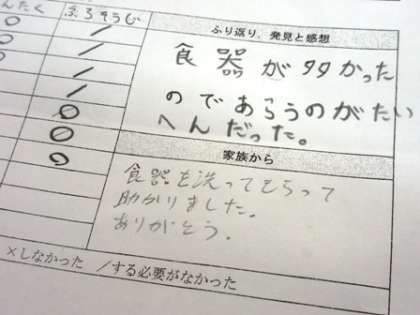 んたく ふろそうじ
ふり返り、発見と感想
食器が多かった
のであらうのがたい
へんだった。
家族から
食器を洗ってもらって
助かりました。
ありがとう.
×しなかった /する必要がなかった